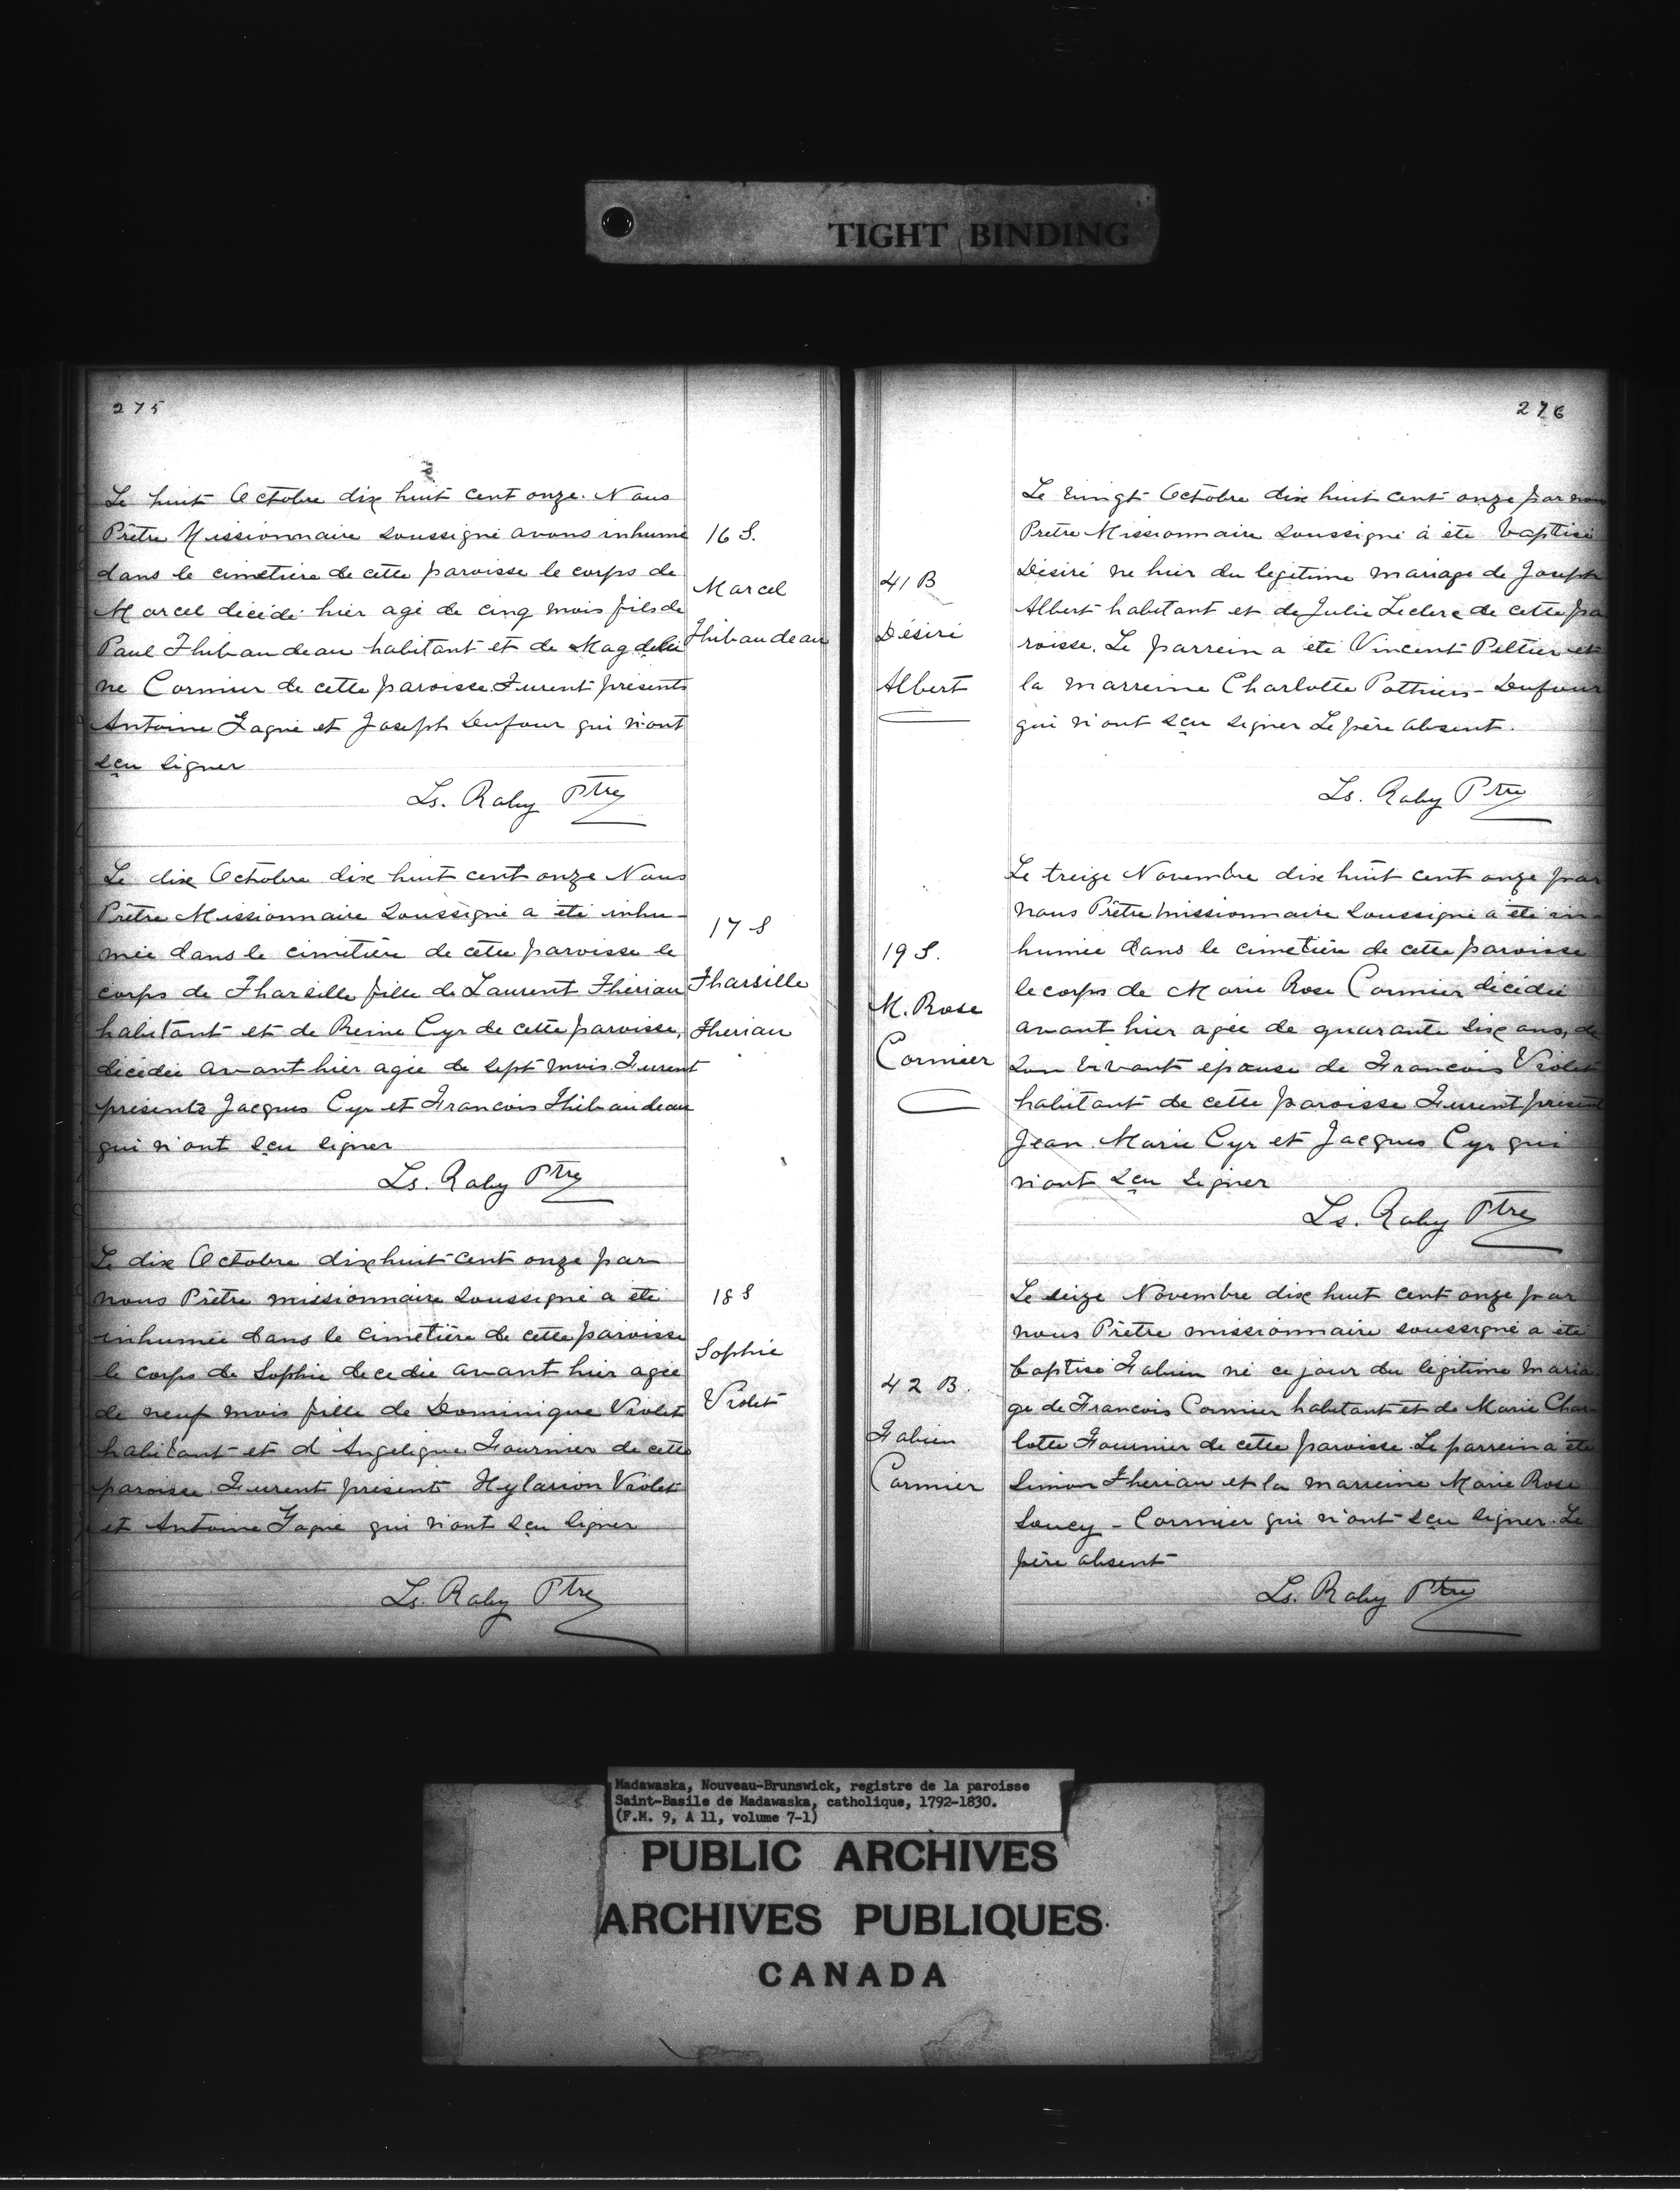 TIGHT BINDING
275
Le huit Octobre dix huit cent onze. Nous
Prêtre Missionnaire soussigné avons inhumé
dans le cimetière de cette paroisse le corps de
Marcel décédé hier agé de cinq mois fils de
Paul Thibaudeau habitant et de Magdelei
ne Cormier de cette paroisse Furent présents
Antoine Gagné et Joseph Dufour qui n'ont
sçu signer
Ls. Raby Ptre
16 S.
Marcel
Thibaudeau
Le dix Octobre dix huit cent onze Nous
Prêtre Missionnaire Soussigné a été inhu-
mée dans le cimetière de cette paroisse le
corps de Tharsille fille de Laurent Therian
habitant et de Reine Cyr de cette paroisse,
décédée avant hier agée de sept mois. Furent
présents Jacques Cyr et Francois Thibaudeau
qui n'ont sçu signer
Ls. Raby Ptre
17 S
Tharsille
Therian
Le dix Octobre dix huit cent onze par
nous Prêtre missionnaire soussigné a été
inhumée dans le cimetière de cette paroisse
le corps de Sophie decedée avant hier agée
de neuf mois fille de Dominique Violet
habitant et d'Angelique Fournier de cette
paroisse Furent présent Hylarion Violet
et Antoine Gagné qui n'ont sçu signer
Ls. Raby Ptre
18 S
Sophie
Violet
276
Le vingt Octobre dix huit cent onze par nous
Prêtre Missionnaire soussigné à été baptisé
Désiré né hier du legitime mariage de Joseph
Albert habitant et de Julie Leclerc de cette pa
roisse. Le parrein a été Vincent Peltier et
la marreine Charlotte Pothiers-Dufour
qui n'ont sçu signer Le père absent.
Ls. Raby Ptre
41 B
Désiré
Albert
Le treize Novembre dix huit cent onze par
nous Prêtre missionnaire soussigné a été in-
humée dans le cimetière de cette paroisse
le corps de Marie Rose Cormier décédée
avant hier agée de quarante six ans, de
son vivant épouse de Francois Violet
habitant de cette paroisse Furent présent
Jean Marie Cyr et Jacques Cyr qui
n'ont sçu signer
Ls. Raby Ptre
19 S.
M. Rose
Cormier
Le seize Novembre dix huit cent onze par
nous Prêtre missionnaire soussigné a été
baptisé Fabien né ce jour du légitime maria
ge de Francois Cormier habitant et de Marie Char
lotte Fournier de cette paroisse. Le parrein a été
Simon Therian et la marreine Marie Rose
Soucy - Cormier qui n'ont sçu signer. Le
père absent
Ls. Raby Ptre
42 B.
Fabien
Cormier
Madawaska, Nouveau-Brunswick, registre de la paroisse
Saint-Basile de Madawaska, catholique, 1792-1830.
(F.M. 9, A 11, volume 7-1)
PUBLIC ARCHIVES
ARCHIVES PUBLIQUES
CANADA